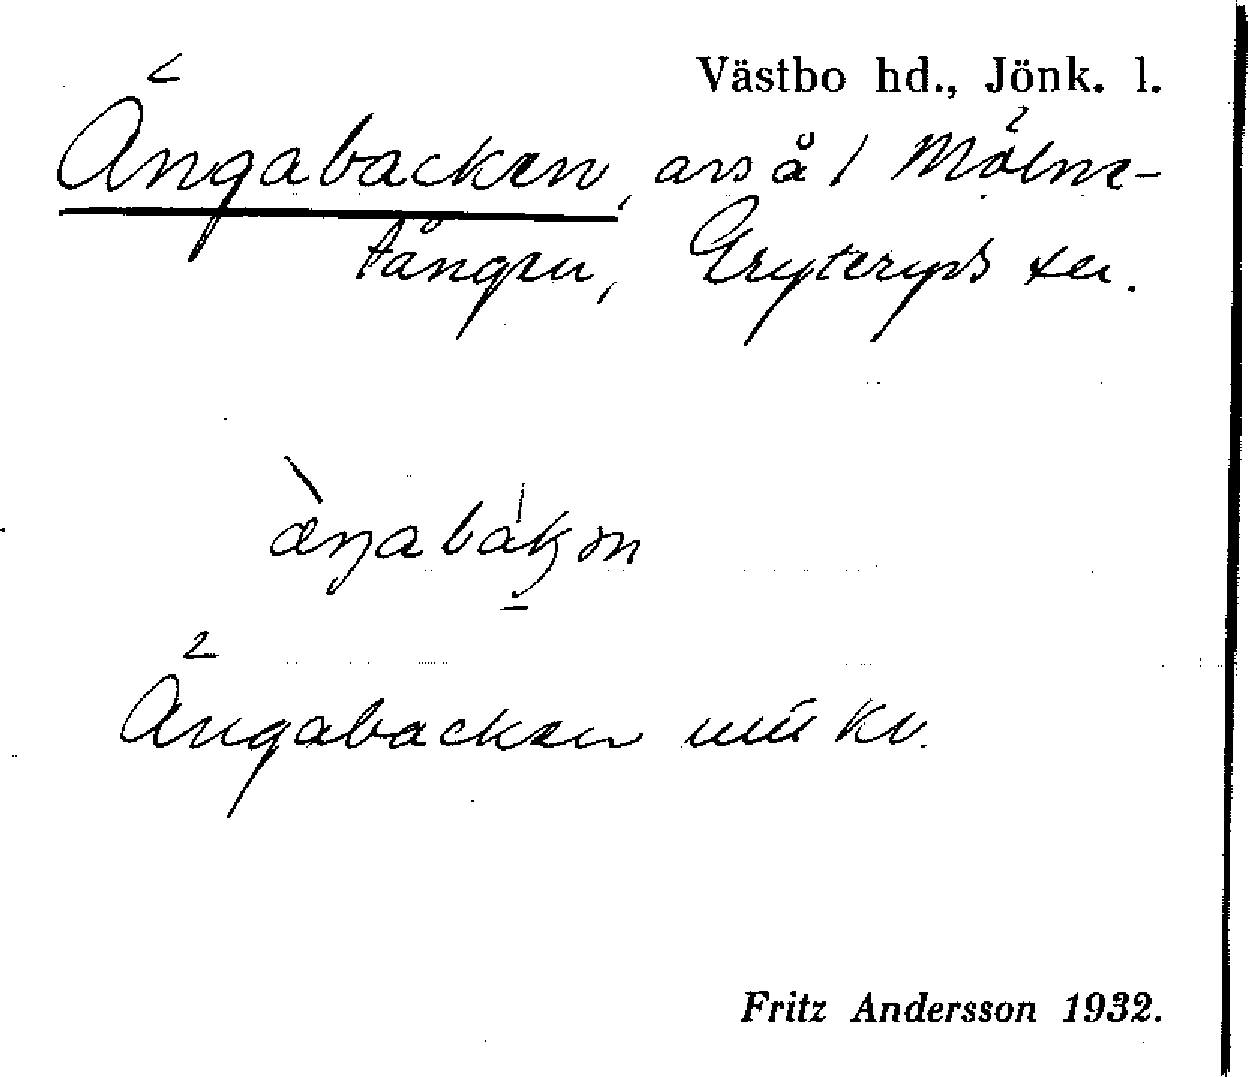 Västbo hd., Jönk. l.
Ängabacken, avs å 1 Mölne-
tången, Gryteryds sn.
æŋabákən
Ängabacken mtl kv.
Fritz Andersson 1932.